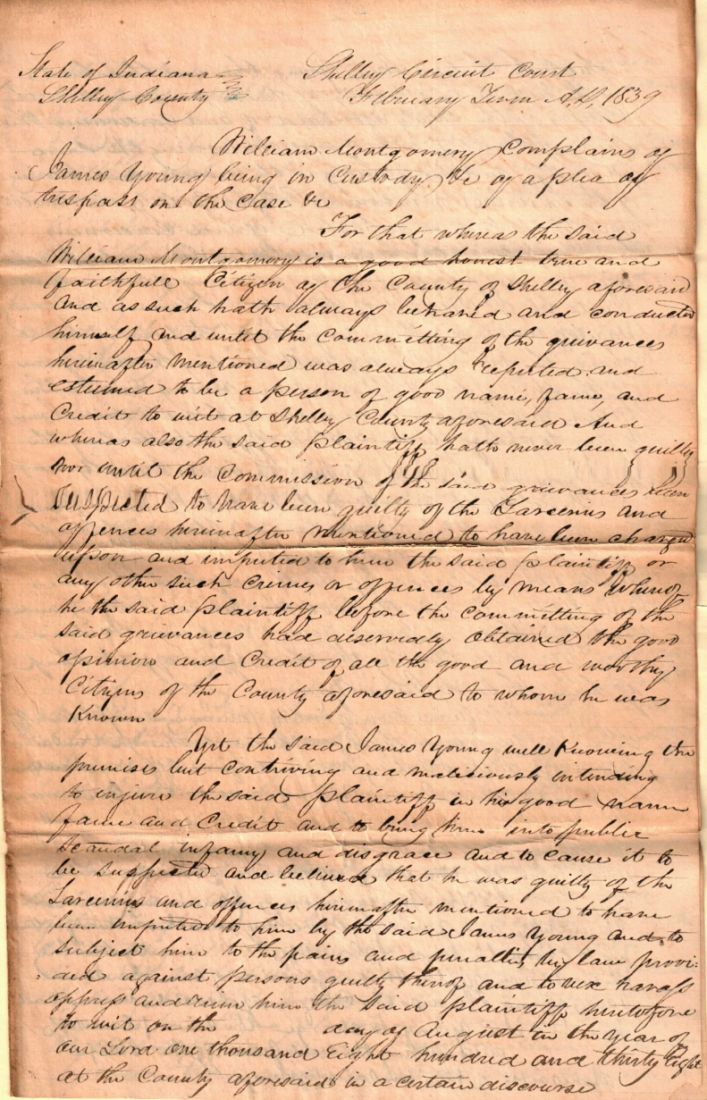 State of Indiana Shelby Circuit Court
Shelby County February Term A.D. 1839
William Montgomery complains of
James Young being in Custody &c of a plea of
trespass on the case &c
For that whereas the said
William Montgomery is a good honest true and
faithfull Citizen of the County of Shelby aforesaid
and as such hath always behaved and conducted
himself and until the committing of the grievances
hereinafter mentioned was always repected and
esteemed to be a person of good name, fame, and
Credit to wit at Shelby County aforesaid And
whereas also the said plaintiff hath never been guilty
nor until the commission of the said grievances been
suspected to have been guilty of the Larcenies and
offences hereinafter mentioned to have been charged
upon and imputed to him the said plaintiff or
any other such crimes or offences by means whereof
he the said plaintiff before the committing of the
said grievances had deservedly obtained the good
opinion and Credit of all the good and worthy
Citizens of the County aforesaid to whom he was
Known
Yet the said James Young well Knowing the
premises but contriving and maliciously intending
to injure the said plaintiff in his good name
fame and Credit and to bring him into public
scandal infamy and disgrace and to cause it to
be suspected and believed that he was guilty of the
Larcenies and offences hereinafter mentioned to have
been imputed to him by the said James Young and to
subject him to the pains and penalties by law provi-
ded against persons guilty thereof and to vex harass
oppress and ruin him the said plaintiff heretofore
to wit on the day of August in the year of
our Lord one thousand Eight hundred and thirty Eight
at the County aforesaid in a certain discourse